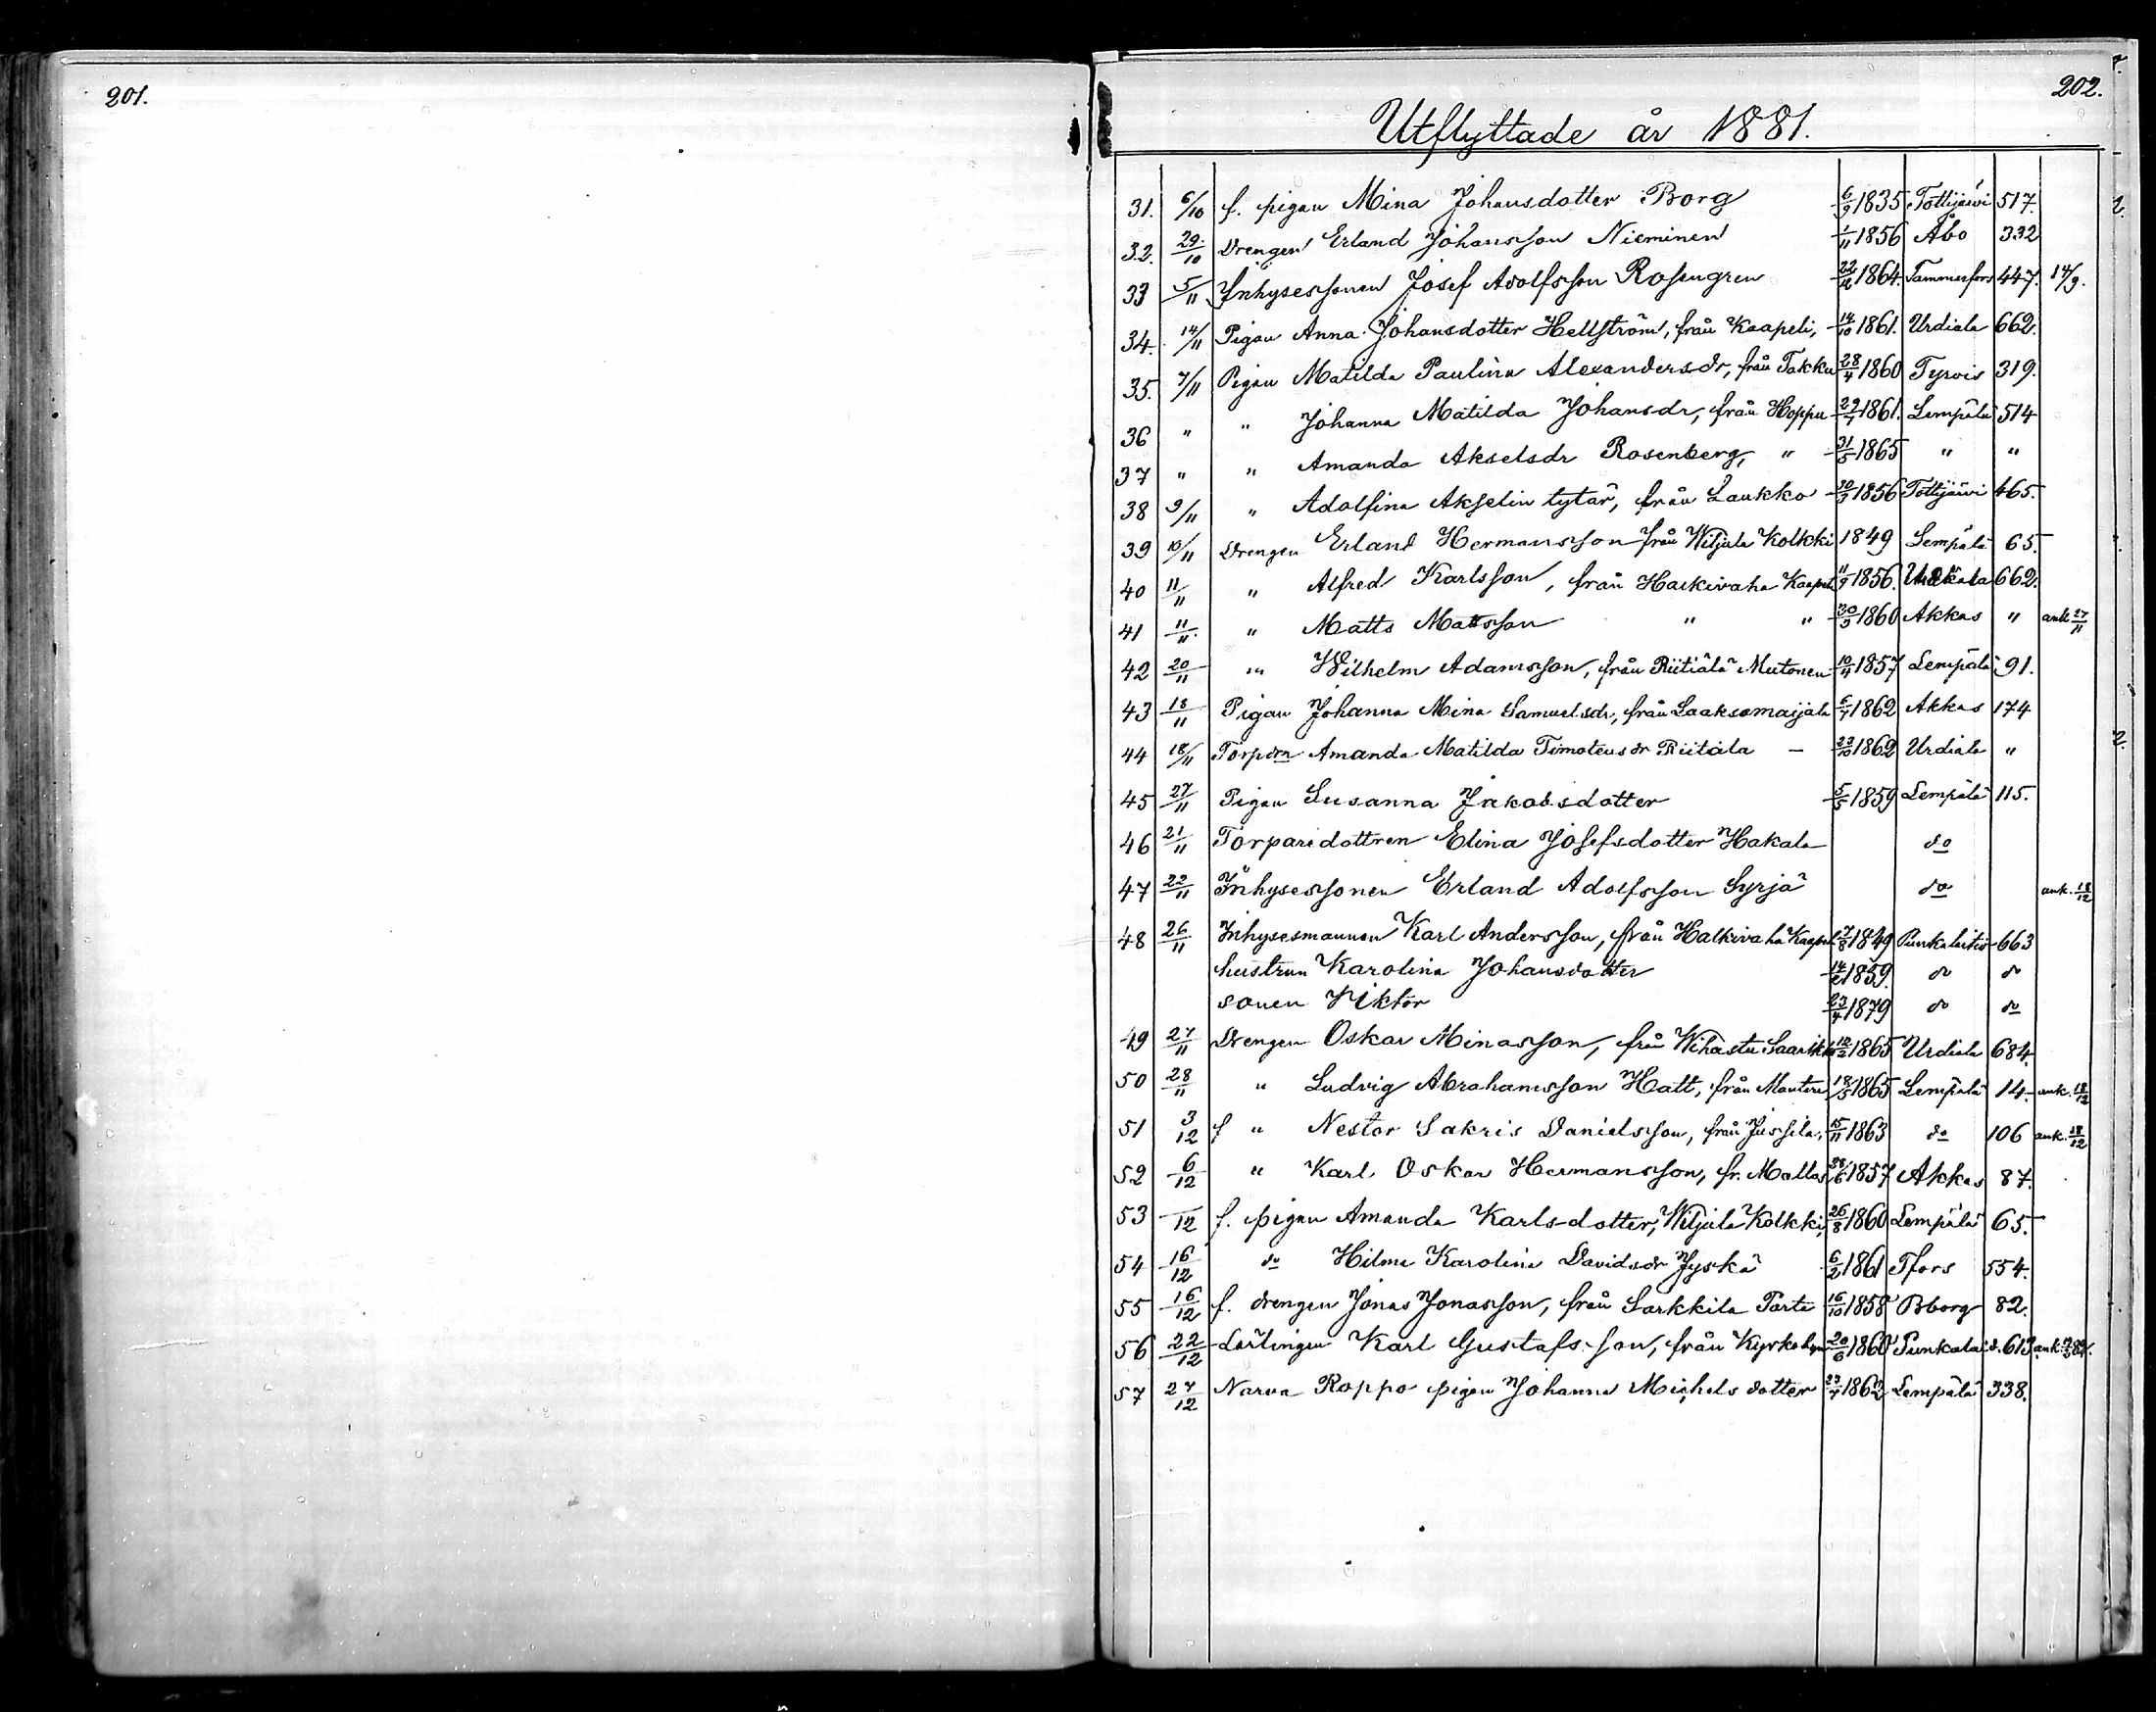 201.
202.
Utflyttade år 1881.
31. 6/10 f. pigan Mina Johansdotter Borg 6/9 1835 Tottijärvi 517.
32. 29/10 Drengen Erland Johansson Nieminen 1/11 1856 Åbo 332
33 5/11 Inhysessonen Josef Adolfsson Rosengren 1864. Tammerfors 447. 14/9.
34. 14/11 Pigan Anna Johansdotter Hellström, från Kaapeli, 14/10 1861. Urdiala 662.
35. 7/11 Pigan Matilda Paulina Alexandersdr, från Takku 28/4 1860 Tyrvis 319.
36 " " Johanna Matilda Johansdr, från Hoppu 29/7 1861. Lempälä 514
37 " " Amanda Akselsdr Rosenberg, " 31/5 1865 " "
38 9/11 " Adolfina Akselin tytär, från Laukko 1856 Tottijärvi 465.
39 10/11 Drengen Erland Hermansson från Wiljala Kolkki 1849 Lempälä 65.
40 11/11 " Alfred Karlsson, från Halkivaha Kaapeli 11/9 1856. Urdiala 662.
41 11/11. " Matts Mattsson " " 1860 Akkas " ank 27/11
42 20/11 " Wilhelm Adamsson, från Riitiälä Mutonen 10/4 1857 Lempälä 91.
43 18/11 Pigan Johanna Mina Samuelsdr, från Laaksomaijala 6/7 1862 Akkas 174
44 18/11 Torpdrn Amanda Matilda Timoteusdr Riitala – 1862 Urdiala "
45 27/11 Pigan Susanna Jakobsdotter 5/5 1859 Lempälä 115.
46 21/11 Torparedottren Elina Josefsdotter Hakala do
47 22/11 Inhysessonen Erland Adolfsson Syrjä do ank. 18/12
48 26/11 Inhysesmannen Karl Andersson, från Halkivaha Kaapeli 7/8 1849 663
hustrun Karolina Johansdotter 1859. do do
sonen Viktor 23/4 1879 do do
49 27/11 Drengen Oskar Minasson, från Wihastu 1865 Urdiala 684.
50 28/11 " Ludvig Abrahamsson Hatt, från Mantere 18/5 1865 Lempälä 14. ank. 18/12
51 3/12 f " Nestor Sakris Danielsson, från Jussila, 15/11 1863 do 106 ank. 18/12
52 6/12 " Karl Oskar Hermansson, fr. Mallas 1857 Akkas 87.
53 –/12 f. pigan Amanda Karlsdotter, Wiljala Kolkki, 26/8 1860 Lempälä 65.
54 16/12 do Hilma Karolina Davidsdr Jyskä 6/2 1861 Tfors 554.
55 16/12 f. drengen Jonas Jonasson, från Sarkkila Parta 16/10 1858 Bborg 82.
56 22/12 Lärlingen Karl Gustafsson, från Kyrkobyn 20/6 1860 613 ank.
57 27/12 Narva Roppo pigan Johanna Michelsdotter 1862 Lempälä 338.